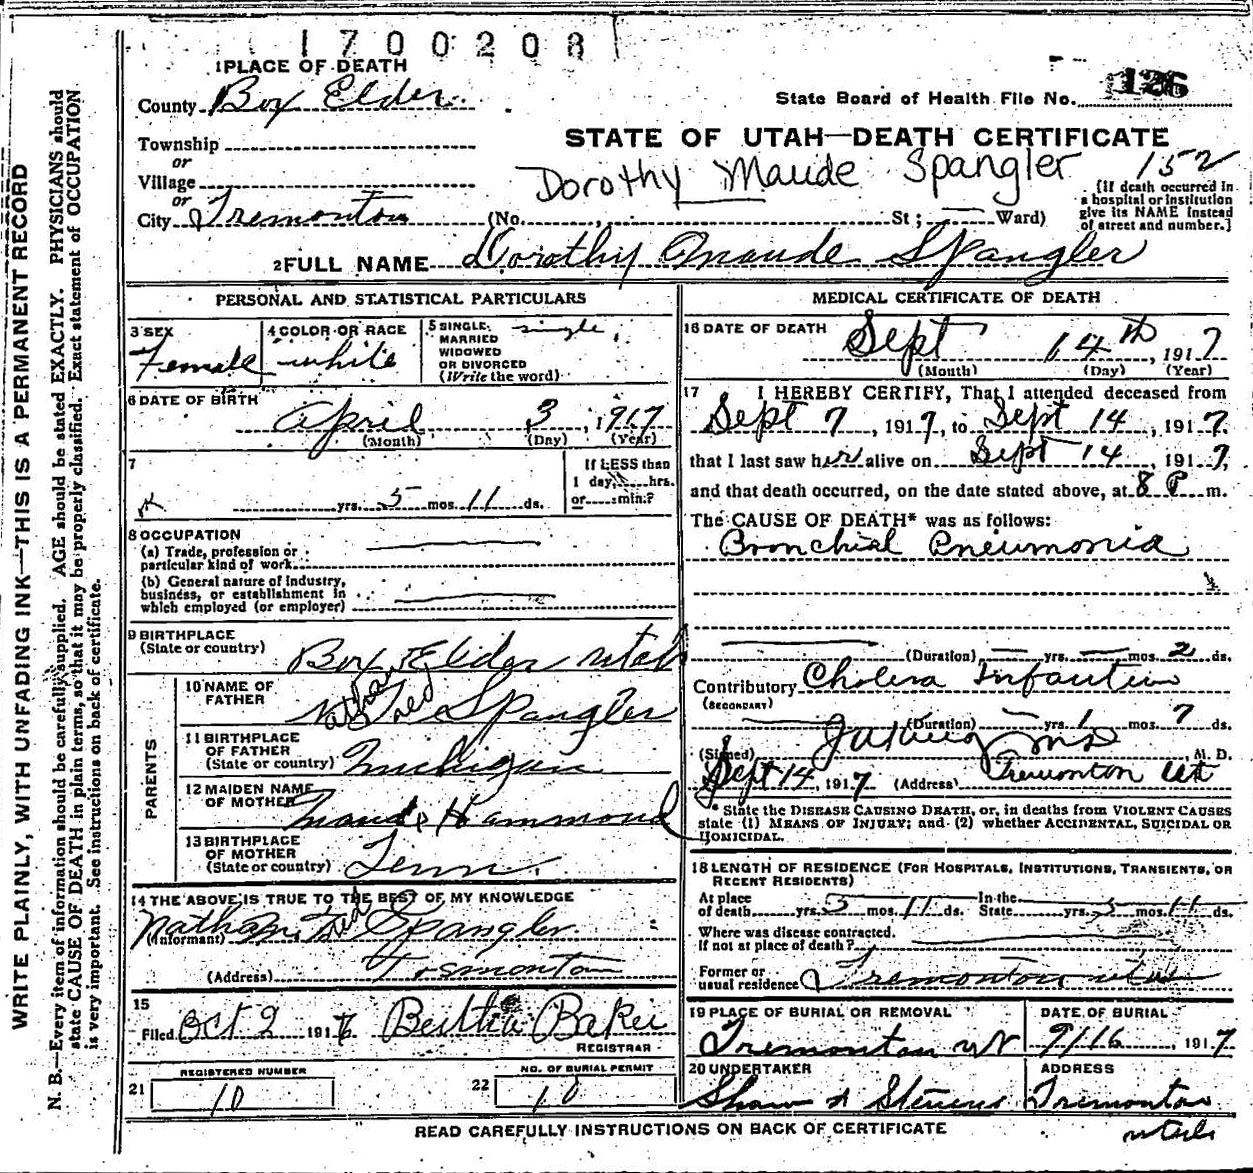 1700208
1 PLACE OF DEATH
County Box Elder
State Board of Health File No. 126
Township
STATE OF UTAH—DEATH CERTIFICATE
or
Village
Dorothy Maude Spangler 152
or
City Tremonton (No. , St; — Ward)
[If death occurred in
a hospital or institution
give its NAME instead
of street and number.]
2 FULL NAME Dorothy Maude Spangler
PERSONAL AND STATISTICAL PARTICULARS
3 SEX
Female
4 COLOR OR RACE
white
5 SINGLE,
MARRIED
WIDOWED
OR DIVORCED
(Write the word)
single
6 DATE OF BIRTH
April 3, 1917
(Month) (Day) (Year)
7
yrs. 5 mos. 11 ds.
If LESS than
1 day, hrs.
or min.?
8 OCCUPATION
(a) Trade, profession or
particular kind of work
(b) General nature of industry,
business, or establishment in
which employed (or employer)
9 BIRTHPLACE
(State or country)
Box Elder Utah
PARENTS
10 NAME OF
FATHER
Nathan Ted Spangler
11 BIRTHPLACE
OF FATHER
(State or country)
Michigan
12 MAIDEN NAME
OF MOTHER
Maude Hammond
13 BIRTHPLACE
OF MOTHER
(State or country)
Tenn.
14 THE ABOVE IS TRUE TO THE BEST OF MY KNOWLEDGE
(Informant) Nathan Ted Spangler
(Address) Tremonton
15
Filed Oct 2 1917 Bertha Baker
REGISTRAR
21 REGISTERED NUMBER
10
22 NO. OF BURIAL PERMIT
10
MEDICAL CERTIFICATE OF DEATH
16 DATE OF DEATH
Sept 14th, 1917
(Month) (Day) (Year)
17 I HEREBY CERTIFY, That I attended deceased from
Sept 7, 1917, to Sept 14, 1917,
that I last saw her alive on Sept 14, 1917,
and that death occurred, on the date stated above, at 8 P m.
The CAUSE OF DEATH* was as follows:
Bronchial Pneumonia
(Duration) — yrs. — mos. 2 ds.
Contributory Cholera Infantum
(SECONDARY)
(Duration) — yrs. 1 mos. 7 ds.
(Signed) M. D.
Sept 14, 1917 (Address) Tremonton Ut
* State the DISEASE CAUSING DEATH, or, in deaths from VIOLENT CAUSES
state (1) MEANS OF INJURY; and (2) whether ACCIDENTAL, SUICIDAL OR
HOMICIDAL.
18 LENGTH OF RESIDENCE (FOR HOSPITALS, INSTITUTIONS, TRANSIENTS, OR
RECENT RESIDENTS)
At place
of death yrs. 5 mos. 11 ds.
In the
State yrs. 5 mos. 11 ds.
Where was disease contracted.
If not at place of death?
Former or
usual residence Tremonton Utah
19 PLACE OF BURIAL OR REMOVAL
Tremonton Ut
DATE OF BURIAL
9/16, 1917
20 UNDERTAKER
Shaw & Stevens
ADDRESS
Tremonton
Utah
READ CAREFULLY INSTRUCTIONS ON BACK OF CERTIFICATE
WRITE PLAINLY, WITH UNFADING INK—THIS IS A PERMANENT RECORD
N. B.—Every item of information should be carefully supplied. AGE should be stated EXACTLY. PHYSICIANS should
state CAUSE OF DEATH in plain terms, so that it may be properly classified. Exact statement of OCCUPATION
is very important. See instructions on back of certificate.